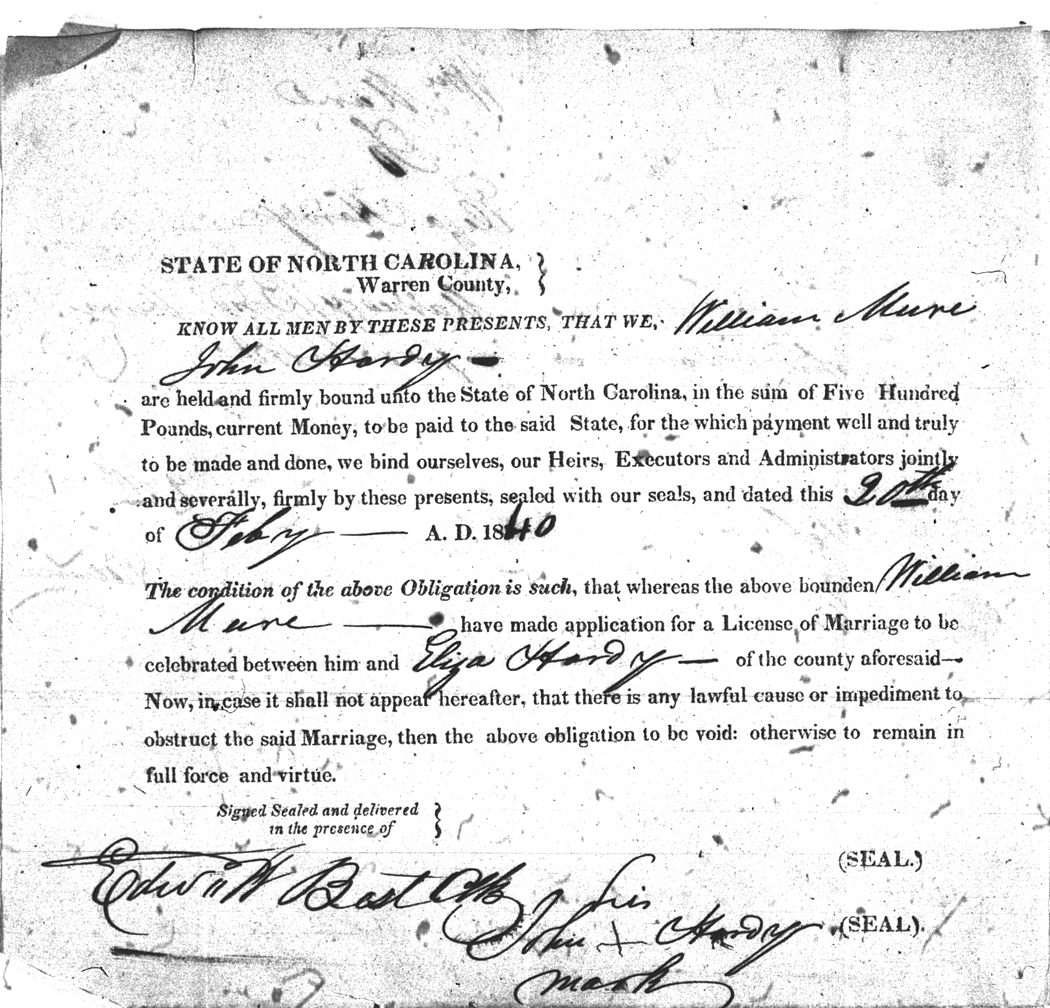 STATE OF NORTH CAROLINA,
Warren County,
KNOW ALL MEN BY THESE PRESENTS, THAT WE, William Mure
John Hardy
are held and firmly bound unto the State of North Carolina, in the sum of Five Hundred
Pounds, current Money, to be paid to the said State, for the which payment well and truly
to be made and done, we bind ourselves, our Heirs, Executors and Administrators jointly
and severally, firmly by these presents, sealed with our seals, and dated this 20th day
of Feby — A. D. 1840
The condition of the above Obligation is such, that whereas the above bounden William
Mure — have made application for a License of Marriage to be
celebrated between him and Eliza Hardy — of the county aforesaid—
Now, in case it shall not appear hereafter, that there is any lawful cause or impediment to
obstruct the said Marriage, then the above obligation to be void: otherwise to remain in
full force and virtue.
Signed Sealed and delivered
in the presence of
(SEAL.)
Edw W Best Clk his
John + Hardy (SEAL).
mark